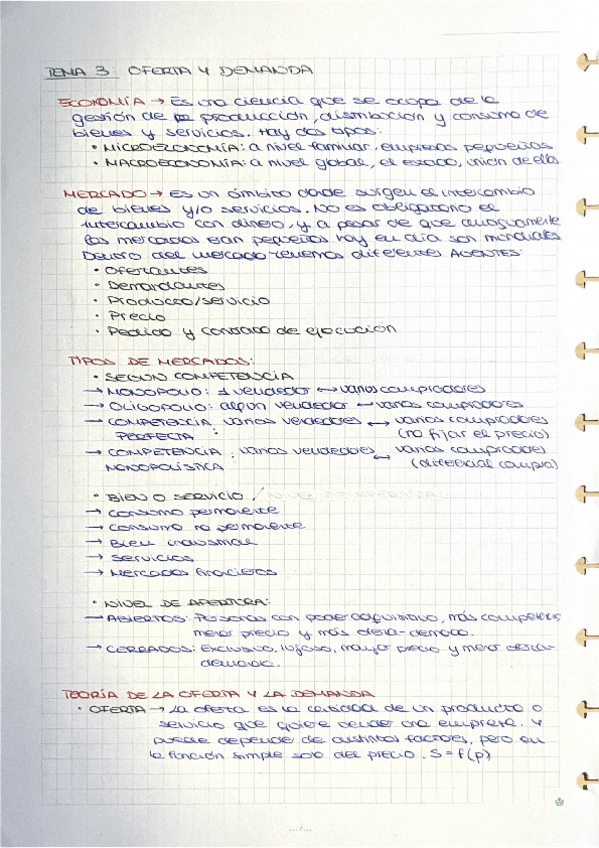 TEMA 3: OFERTA Y DEMANDA
ECONOMÍA → Es una ciencia que se ocupa de la
gestión de la producción, distribución y consumo de
bienes y servicios. Hay dos tipos:
• MICROECONOMÍA: a nivel familiar, empresas pequeñas
• MACROECONOMÍA: a nivel global, el estado, unión de ellos
MERCADO → Es un ámbito donde surgen el intercambio
de bienes y/o servicios. No es obligatorio el
intercambio con dinero, y a pesar de que antiguamente
los mercados eran pequeños hoy en día son mundiales
Dentro del mercado tenemos diferentes AGENTES:
• Ofertantes
• Demandantes
• Producto/servicio
• Precio
• Pedido y contrato de ejecución
TIPOS DE MERCADOS:
• SEGÚN COMPETENCIA
→ MONOPOLIO: 1 vendedor ↔ varios compradores
→ OLIGOPOLIO: algún vendedor ↔ varios compradores
→ COMPETENCIA varios vendedores ↔ varios compradores
PERFECTA : (no fijar el precio)
→ COMPETENCIA : varios vendedores ↔ varios compradores
MONOPOLÍSTICA (diferencial compra)
• BIEN O SERVICIO /
→ Consumo permanente
→ Consumo no permanente
→ Bien industrial
→ Servicios
→ Mercados financieros
• NIVEL DE APERTURA:
→ ABIERTOS: Personas con poder adquisitivo, más competencia,
menor precio y más oferta-demanda.
→ CERRADOS: Exclusivo, lujoso, mayor precio y menor oferta-
demanda.
TEORÍA DE LA OFERTA Y LA DEMANDA
• OFERTA → La oferta es la cantidad de un producto o
servicio que quiere vender una empresa. Y
puede depende de distintos factores, pero en
la función simple solo del precio. S = f(p)
.../...